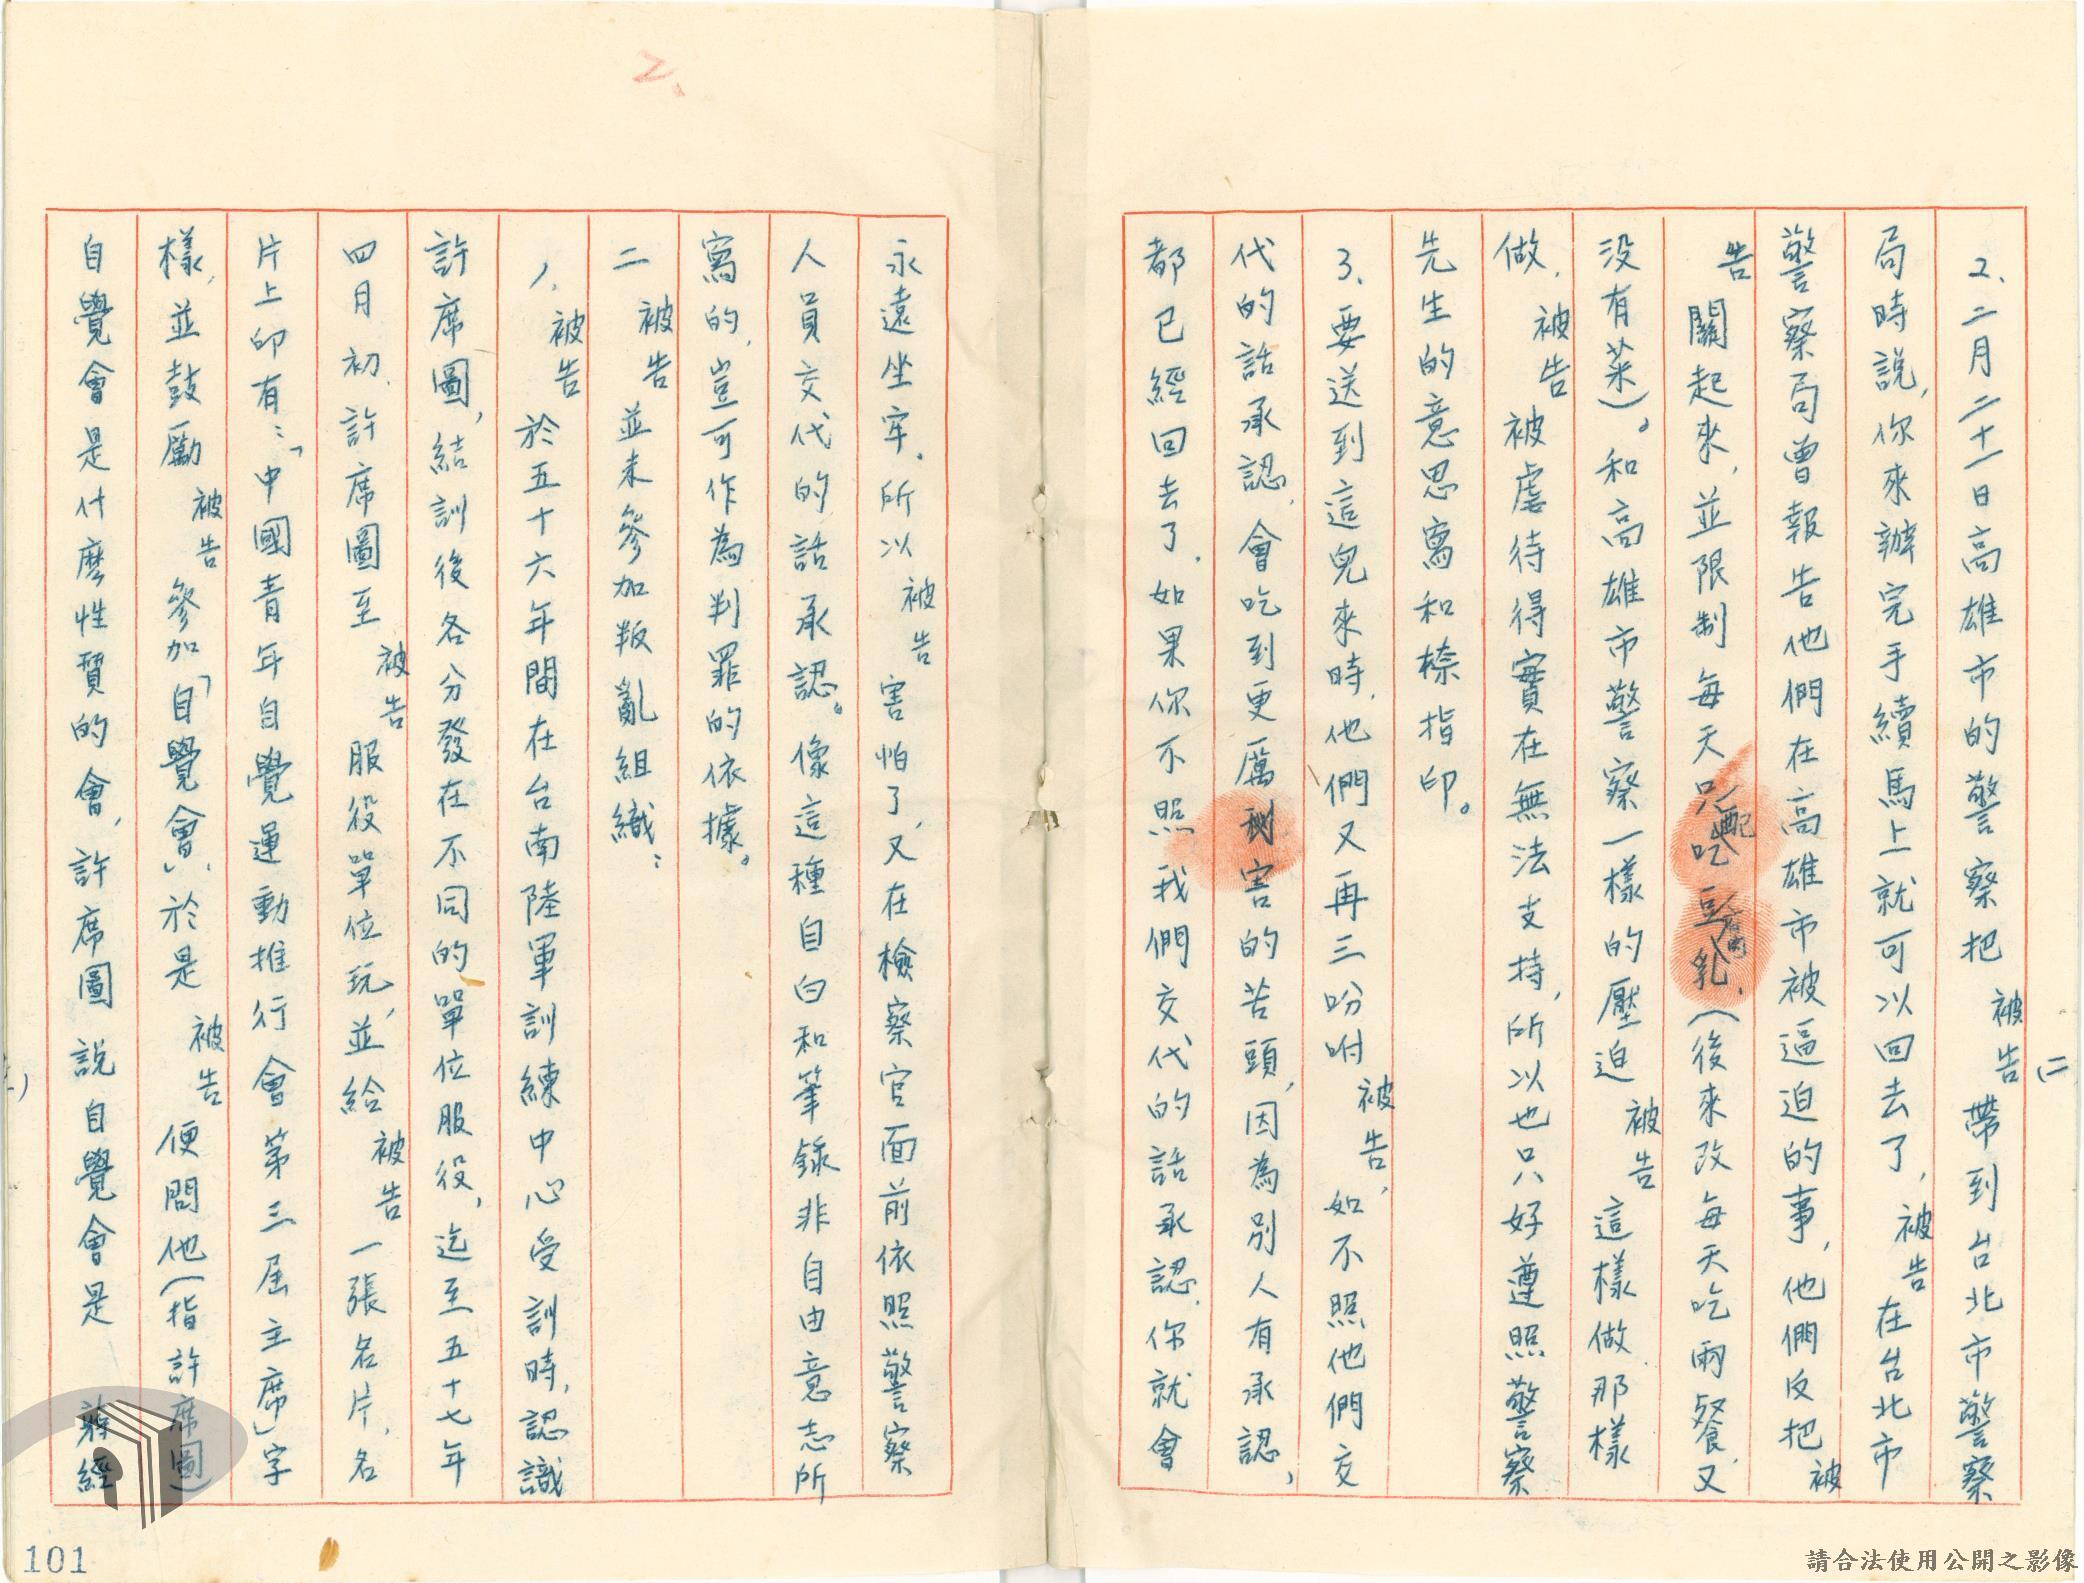 (二
2、二月二十一日高雄市的警察把被告帶到台北市警察
局時說,你來辦完手續馬上就可以回去了,被告在台北市
警察局曾報告他們在高雄市被逼迫的事,他們反把被
告關起來,並限制每天只配吃豆腐乳,(後來改每天吃兩餐,又
没有菜)。和高雄市警察一樣的壓迫被告這樣做.那樣
做,被告被虐待得實在無法支持,所以也只好遵照警察
先生的意思寫和捺指印。
3、要送到這兒來時,他們又再三吩咐被告,如不照他們交
代的話承認,會吃到更厲害的苦頭,因為別人有承認,
都已經回去了.如果你不照我們交代的話承認,你就會
2、
永遠坐牢.所以被告害怕了,又在檢察官面前依照警察
人員交代的話承認。像這種自白和筆錄非自由意志所
寫的,豈可作為判罪的依據。
二被告並未參加叛亂組織:
1、被告於五十六年間在台南陸軍訓練中心受訓時,認識
許席圖,結訓後各分發在不同的單位服役,迄至五十七年
四月初,許席圖至被告服役單位玩,並給被告一張名片,名
片上印有:「中國青年自覺運動推行會第三屆主席」字
樣,並鼓勵被告參加「自覺會」,於是被告便問他(指許席圖)
自覺會是什麼性質的會,許席圖說自覺會是 蔣經
101
請合法使用公開之影像